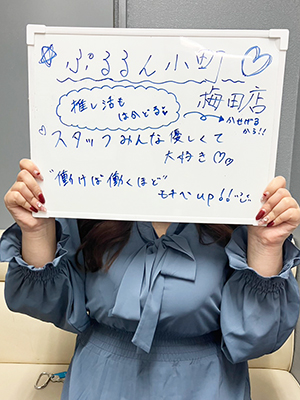 ぷるるん小町
梅田店
推し活も
はかどる
かせげる
から!!
スタッフみんな優しくて
大好き♡♡
"働けば働くほど"
モチベup!!